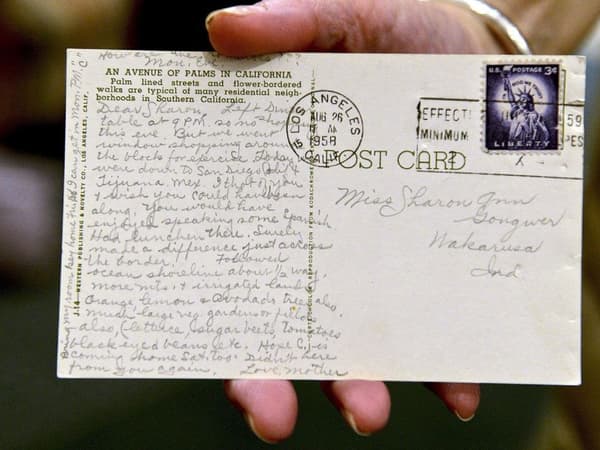 How are the
Mon. Eve.
AN AVENUE OF PALMS IN CALIFORNIA
Palm lined streets and flower-bordered
walks are typical of many residential neigh-
borhoods in Southern California.
Dear Sharon Left Dinner
table at 9 P.M. so no shopping
this eve. But we went
window shopping around
the blocks for exercise. Today
were down to San Diego Calif &
Tijuana, Mex. I thot of you
& wish you could have been
along. You would have
enjoyed speaking some Spanish
Had luncheon there. Surely
made a difference just across
the border!! Followed
ocean shoreline about 1/2 way,
more mts. & irrigated land.
Orange, lemon & Avodado trees also.
much large veg. gardens or fields
also, (lettuce, sugar beets, tomatoes
black eyed beans, etc. Hope C.J. is
coming home Sat. too. Didn't hear
from you again. Love, Mother
Bring my room key home that I can get in Mon. P.M.
J-14—WESTERN PUBLISHING & NOVELTY CO., LOS ANGELES, CALIF.
REPRODUCTION FROM KODACHROME
LOS ANGELES
AUG 26
AM
1958
CALIF.
15
EFFECTI
MINIMUM
59
PES
U.S. POSTAGE 3¢
IN GOD WE TRUST
LIBERTY
POST CARD
Miss Sharon Ann
Gongwer
Wakarusa
Ind